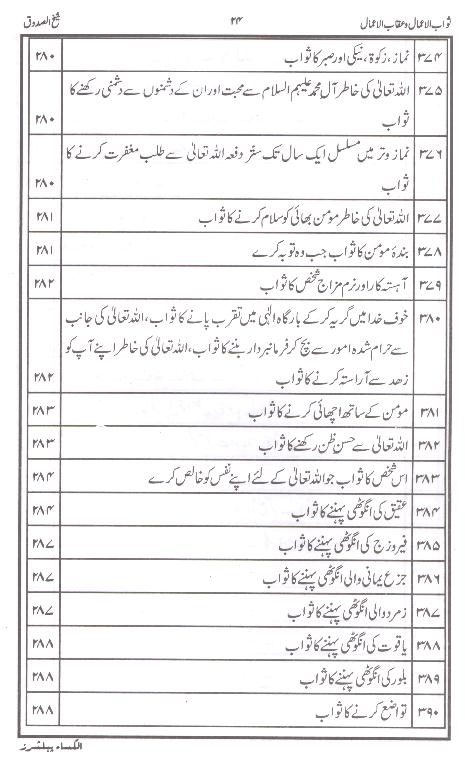 ثواب الاعمال و عقاب الاعمال ۲۴ شیخ الصدوق
۳۷۴ نماز، زکوٰۃ، نیکی اور صبر کا ثواب ۲۸۰
۳۷۵ اللہ تعالیٰ کی خاطر آل محمد علیہم السلام سے محبت اور ان کے دشمنوں سے دشمنی رکھنے کا
ثواب ۲۸۰
۳۷۶ نماز وتر میں مسلسل ایک سال تک ستر دفعہ اللہ تعالیٰ سے طلب مغفرت کرنے کا
ثواب ۲۸۰
۳۷۷ اللہ تعالیٰ کی خاطر مؤمن بھائی کو سلام کرنے کا ثواب ۲۸۱
۳۷۸ بندۂ مؤمن کا ثواب جب وہ توبہ کرے ۲۸۱
۳۷۹ آہستہ کار اور نرم مزاج شخص کا ثواب ۲۸۲
۳۸۰ خوف خدا میں گریہ کر کے بارگاہ الٰہی میں تقرب پانے کا ثواب، اللہ تعالیٰ کی جانب
سے حرام شدہ امور سے بچ کر فرمانبردار بننے کا ثواب، اللہ تعالیٰ کی خاطر اپنے آپ کو
زھد سے آراستہ کرنے کا ثواب ۲۸۲
۳۸۱ مؤمن کے ساتھ اچھائی کرنے کا ثواب ۲۸۳
۳۸۲ اللہ تعالیٰ سے حسن ظن رکھنے کا ثواب ۲۸۳
۳۸۳ اس شخص کا ثواب جو اللہ تعالیٰ کے لئے اپنے نفس کو خالص کرے ۲۸۴
۳۸۴ عقیق کی انگوٹھی پہننے کا ثواب ۲۸۴
۳۸۵ فیروزج کی انگوٹھی پہننے کا ثواب ۲۸۷
۳۸۶ جزع یمانی والی انگوٹھی پہننے کا ثواب ۲۸۷
۳۸۷ زمرد والی انگوٹھی پہننے کا ثواب ۲۸۷
۳۸۸ یاقوت کی انگوٹھی پہننے کا ثواب ۲۸۸
۳۸۹ بلور کی انگوٹھی پہننے کا ثواب ۲۸۸
۳۹۰ تواضع کرنے کا ثواب ۲۸۸
الکساء پبلشرز